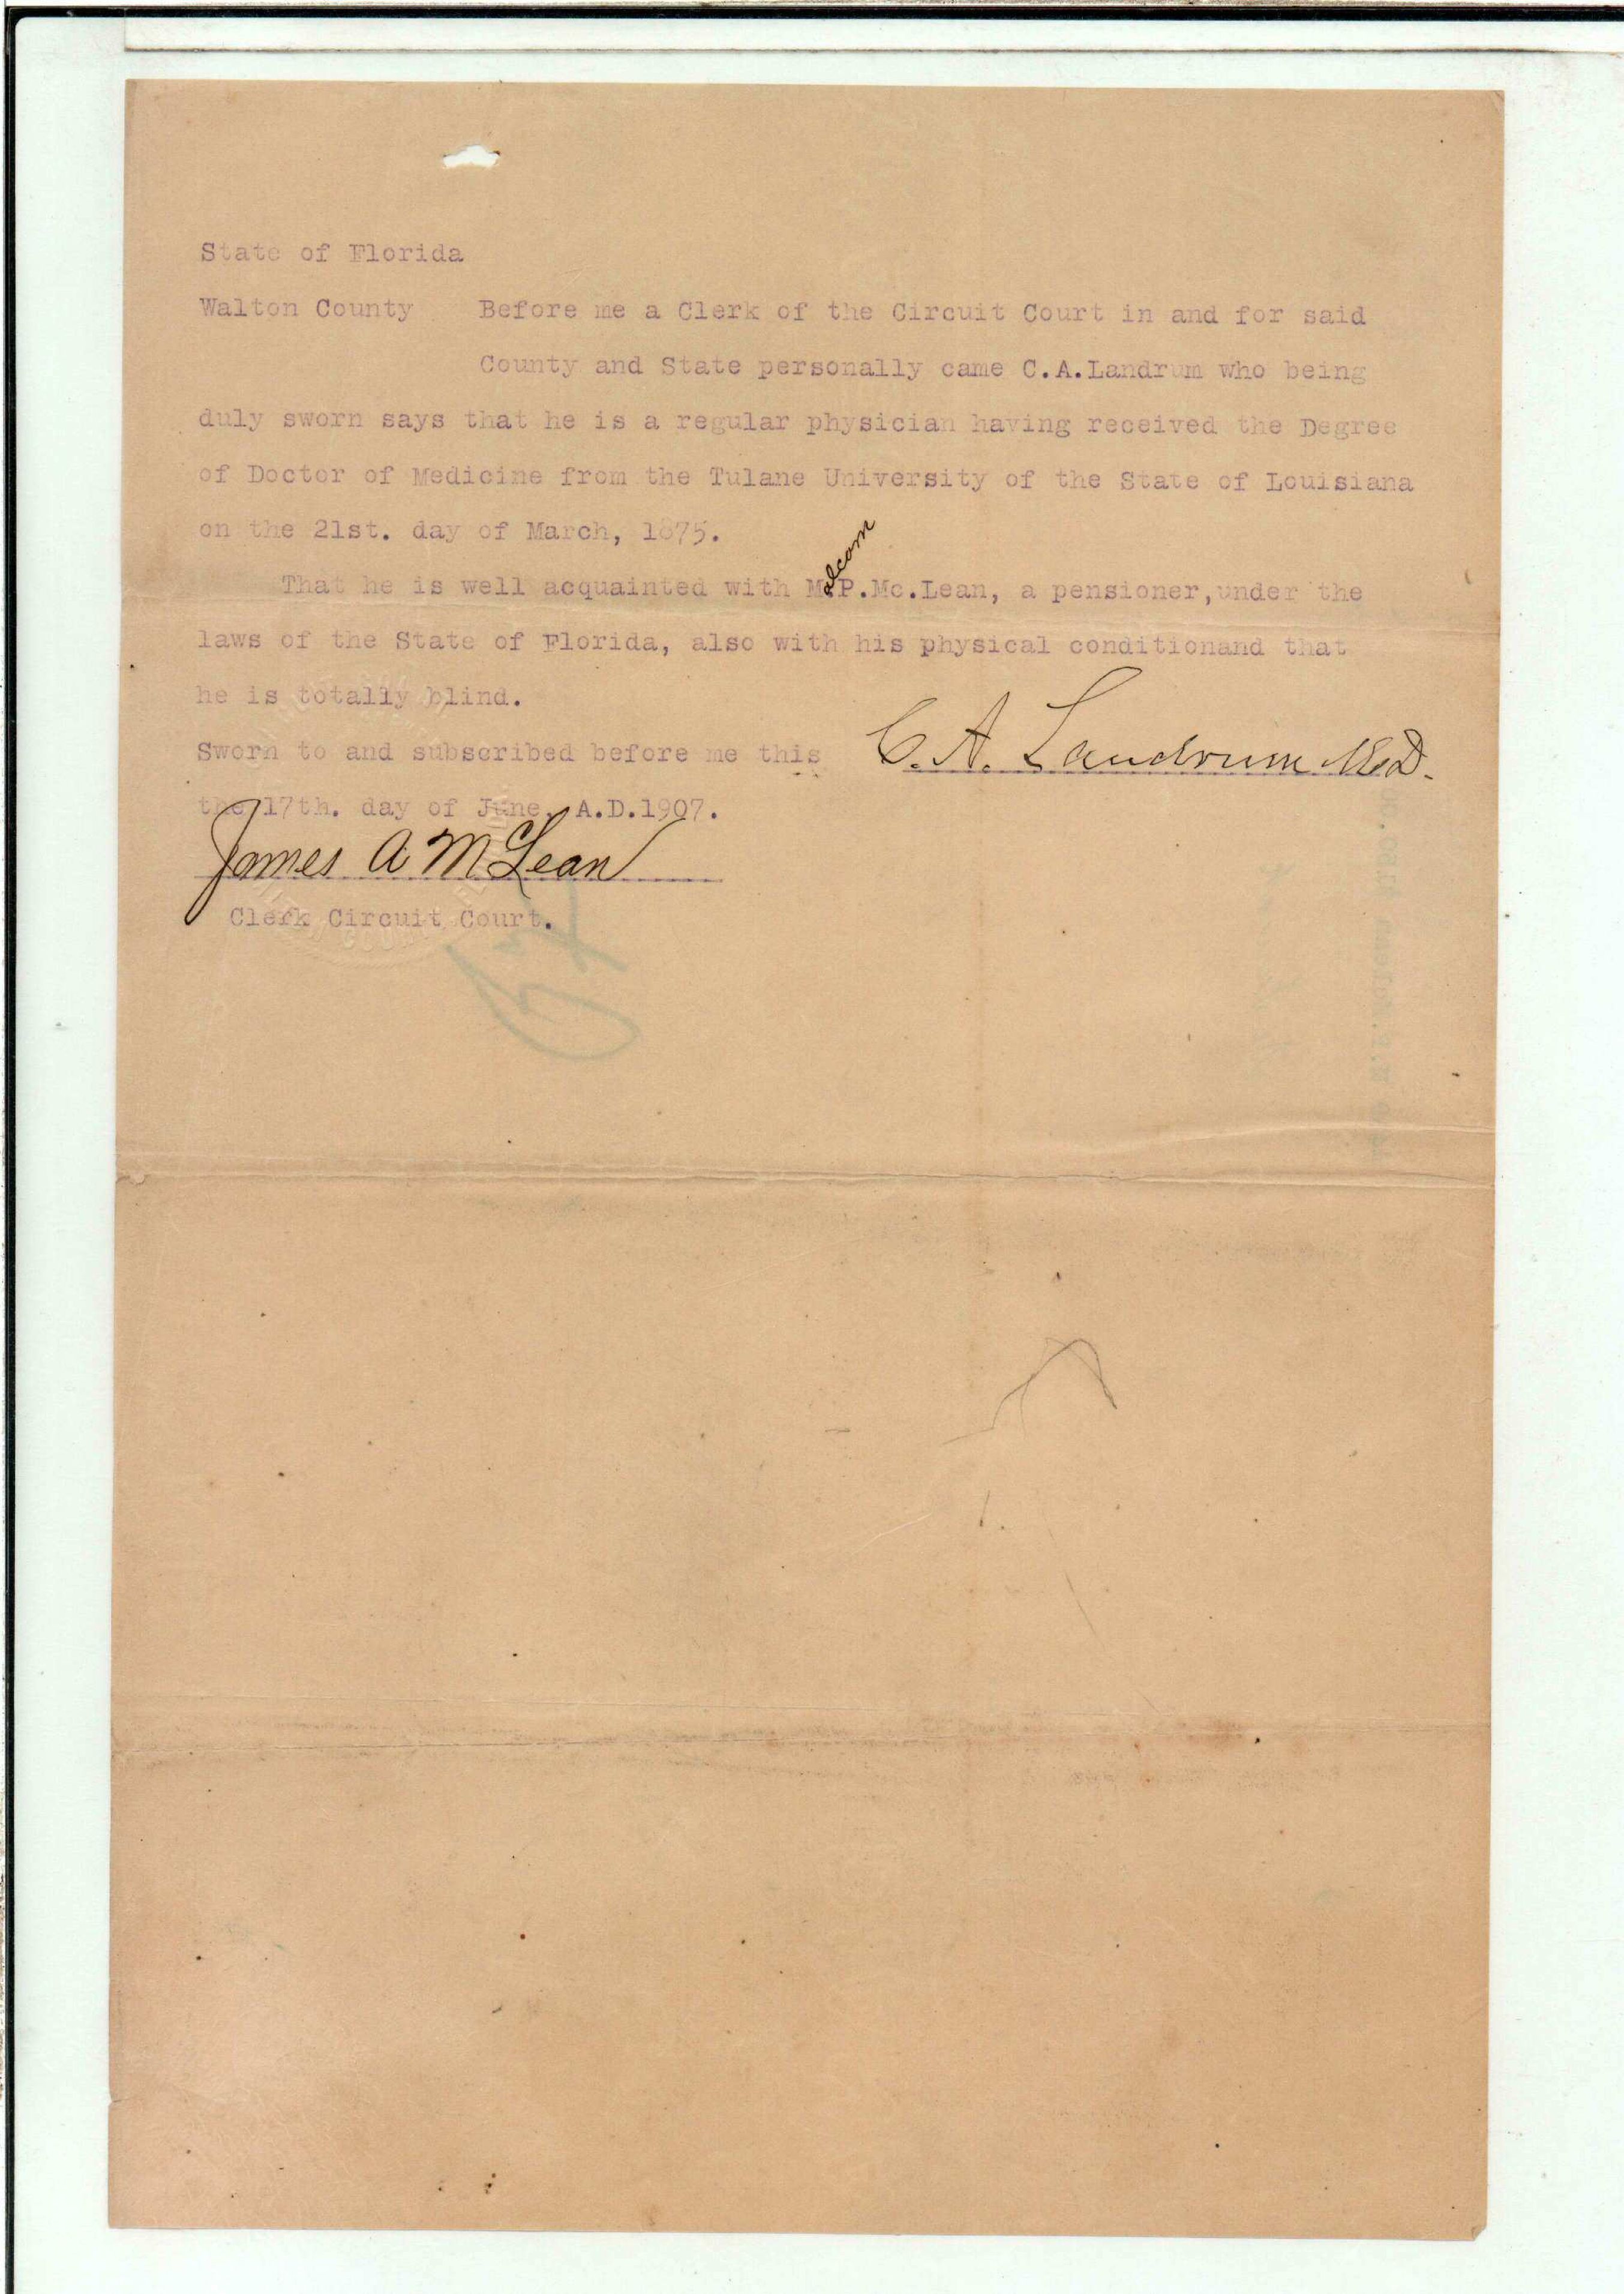 State of Florida
Walton County Before me a Clerk of the Circuit Court in and for said
County and State personally came C.A.Landrum who being
duly sworn says that he is a regular physician having received the Degree
of Doctor of Medicine from the Tulane University of the State of Louisiana
on the 21st. day of March, 1875.
alcom
That he is well acquainted with M.P.Mc.Lean, a pensioner,under the
laws of the State of Florida, also with his physical conditionand that
he is totally blind.
Sworn to and subscribed before me this C. A. Landrum M.D.
the 17th. day of June, A.D.1907.
James A McLean
Clerk Circuit Court.